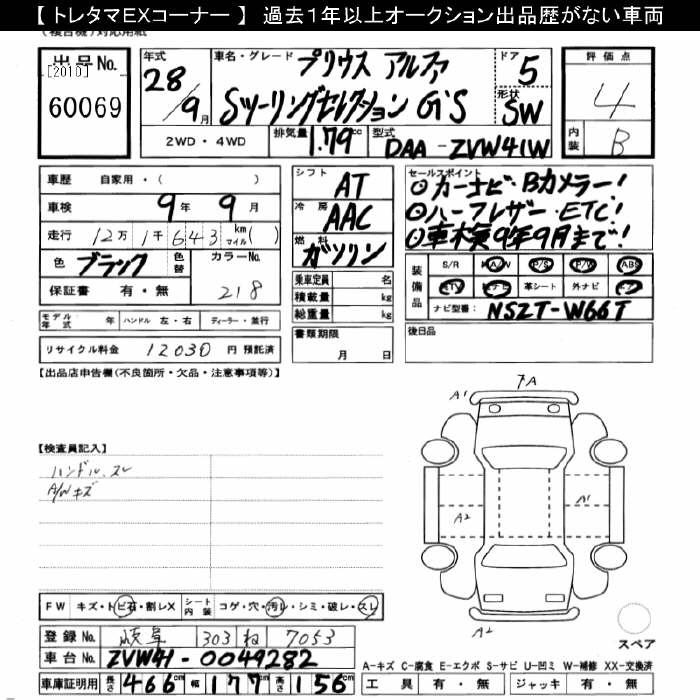 【 トレタマEXコーナー 】 過去1年以上オークション出品歴がない車両
出品No.
[2010]
60069
年式
28/9月
車名・グレード
プリウス アルファ
Sツーリングセレクション G'S
ドア
5
形状
SW
評価点
4
内装
B
2WD・4WD
排気量
1.79cc
型式
DAA-ZVW41W
車歴 自家用・( )
車検 9年 9月
走行 12万 1千 643 km マイル ( )
色 ブラック 色替
カラーNo.
218
保証書 有・無
モデル年式 年 ハンドル 左・右 ディーラー・並行
リサイクル料金 12030 円 預託済
シフト AT
冷房 AAC
燃料 ガソリン
乗車定員 名
積載量 kg
総重量 kg
書類期限
月 日
セールスポイント
◎カーナビ・Bカメラー!
◎ハーフレザー・ETC!
◎車検9年9月まで!
装備品
S/R A/W P/S P/W ABS
TV ナビ 革シート 外ナビ エア
ナビ型番: NSZT-W66T
後日品
【出品店申告欄(不良箇所・欠品・注意事項等)】
【検査員記入】
ハンドル、スレ
A/Wキズ
7A
A1
A2
A1
A2
スペア
FW キズ・トビ石・割レX シート内装 コゲ・穴・汚レ・シミ・破レ・スレ
登録No. 岐阜 303 ね 7053
車台No. ZVW41-0049282
車庫証明用 長さ 466 幅 177 高さ 156 cm
A-キズ C-腐食 E-エクボ S-サビ U-凹ミ W-補修 XX-交換済
工具 有・無 ジャッキ 有・無